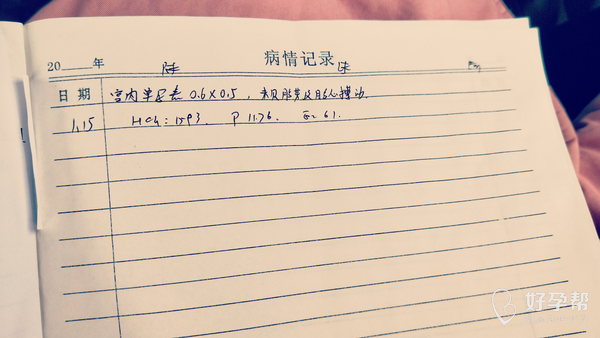 病情记录
20 年
日期 宫内孕囊 0.6×0.5，未见胎芽及胎心搏动
1.15 HCG: 1593. P 11.76. E2 61.
好孕帮